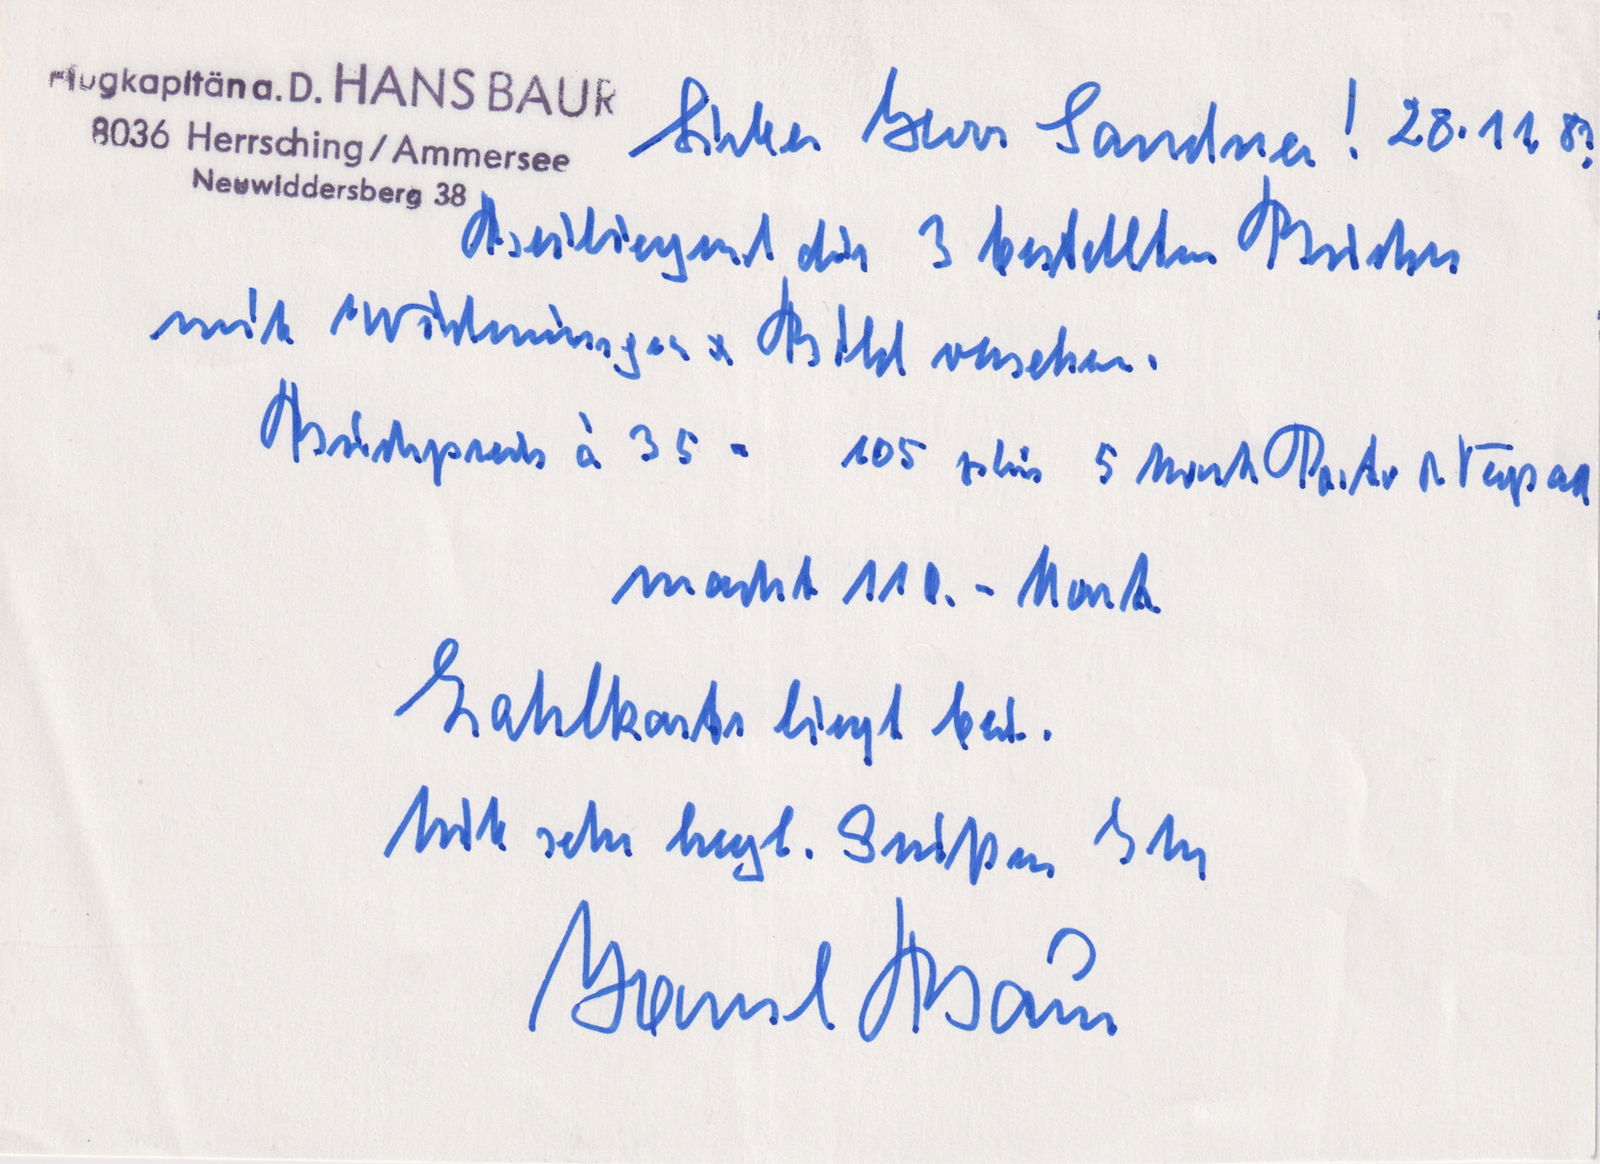 Flugkapitän a. D. HANS BAUR
8036 Herrsching / Ammersee
Neuwiddersberg 38
Lieber Herr Sandner! 28.11.83
Beiliegend die 3 bestellten Bücher
mit Widmungen u Bild versehen.
Buchpreis à 35 - 105 plus 5 Mark Porto u. Verpack
macht 110.- Mark
Zahlkarte liegt bei.
Mit sehr herzl. Grüßen Ihr
Hansl Baur